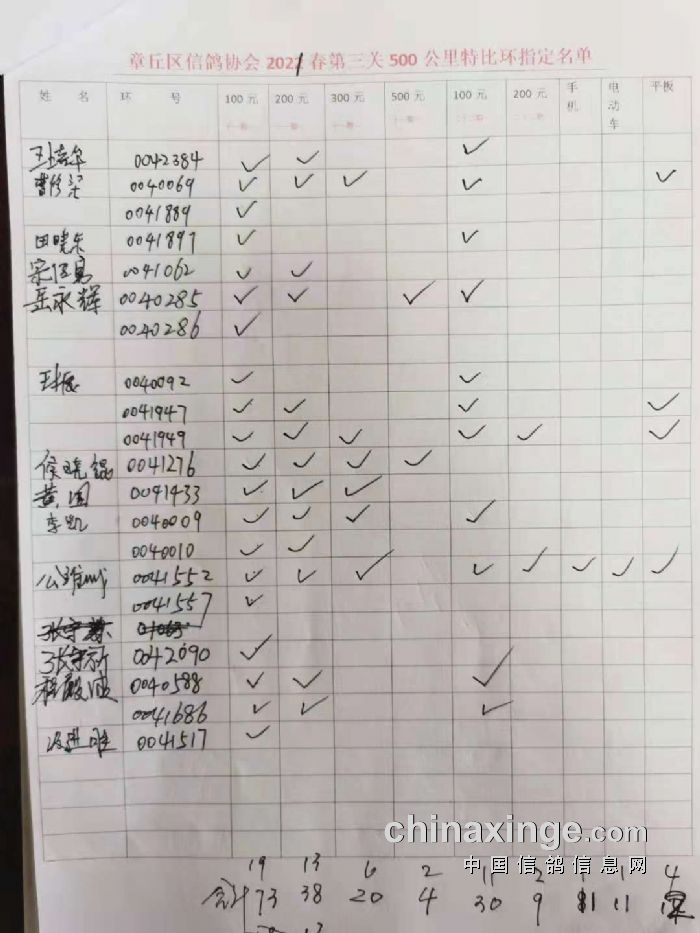 章丘区信鸽协会2021春第三关500公里特比环指定名单
姓 名 环 号 100元 200元 300元 500元 100元 200元 手机 电动车 平板
0042384 ✓ ✓ ✓
0040069 ✓ ✓ ✓ ✓ ✓
0041889 ✓
田晓东 0041897 ✓ ✓
0041062 ✓ ✓
岳永辉 0040285 ✓ ✓ ✓ ✓
0040286 ✓
0040092 ✓ ✓
0041947 ✓ ✓ ✓ ✓
0041949 ✓ ✓ ✓ ✓ ✓ ✓
侯晓锟 0041276 ✓ ✓ ✓ ✓
黄国 0041433 ✓ ✓ ✓
李凯 0040009 ✓ ✓ ✓ ✓
0040010 ✓ ✓
0041552 ✓ ✓ ✓ ✓ ✓ ✓ ✓ ✓
0041557 ✓
张守新 0042090 ✓
程殿波 0040588 ✓ ✓ ✓
0041686 ✓ ✓ ✓
0041517 ✓
19 13 6 2 11 2 1 1 4
合计 73 38 20 4 30 9 11 11
chinaxinge.com
中国信鸽信息网